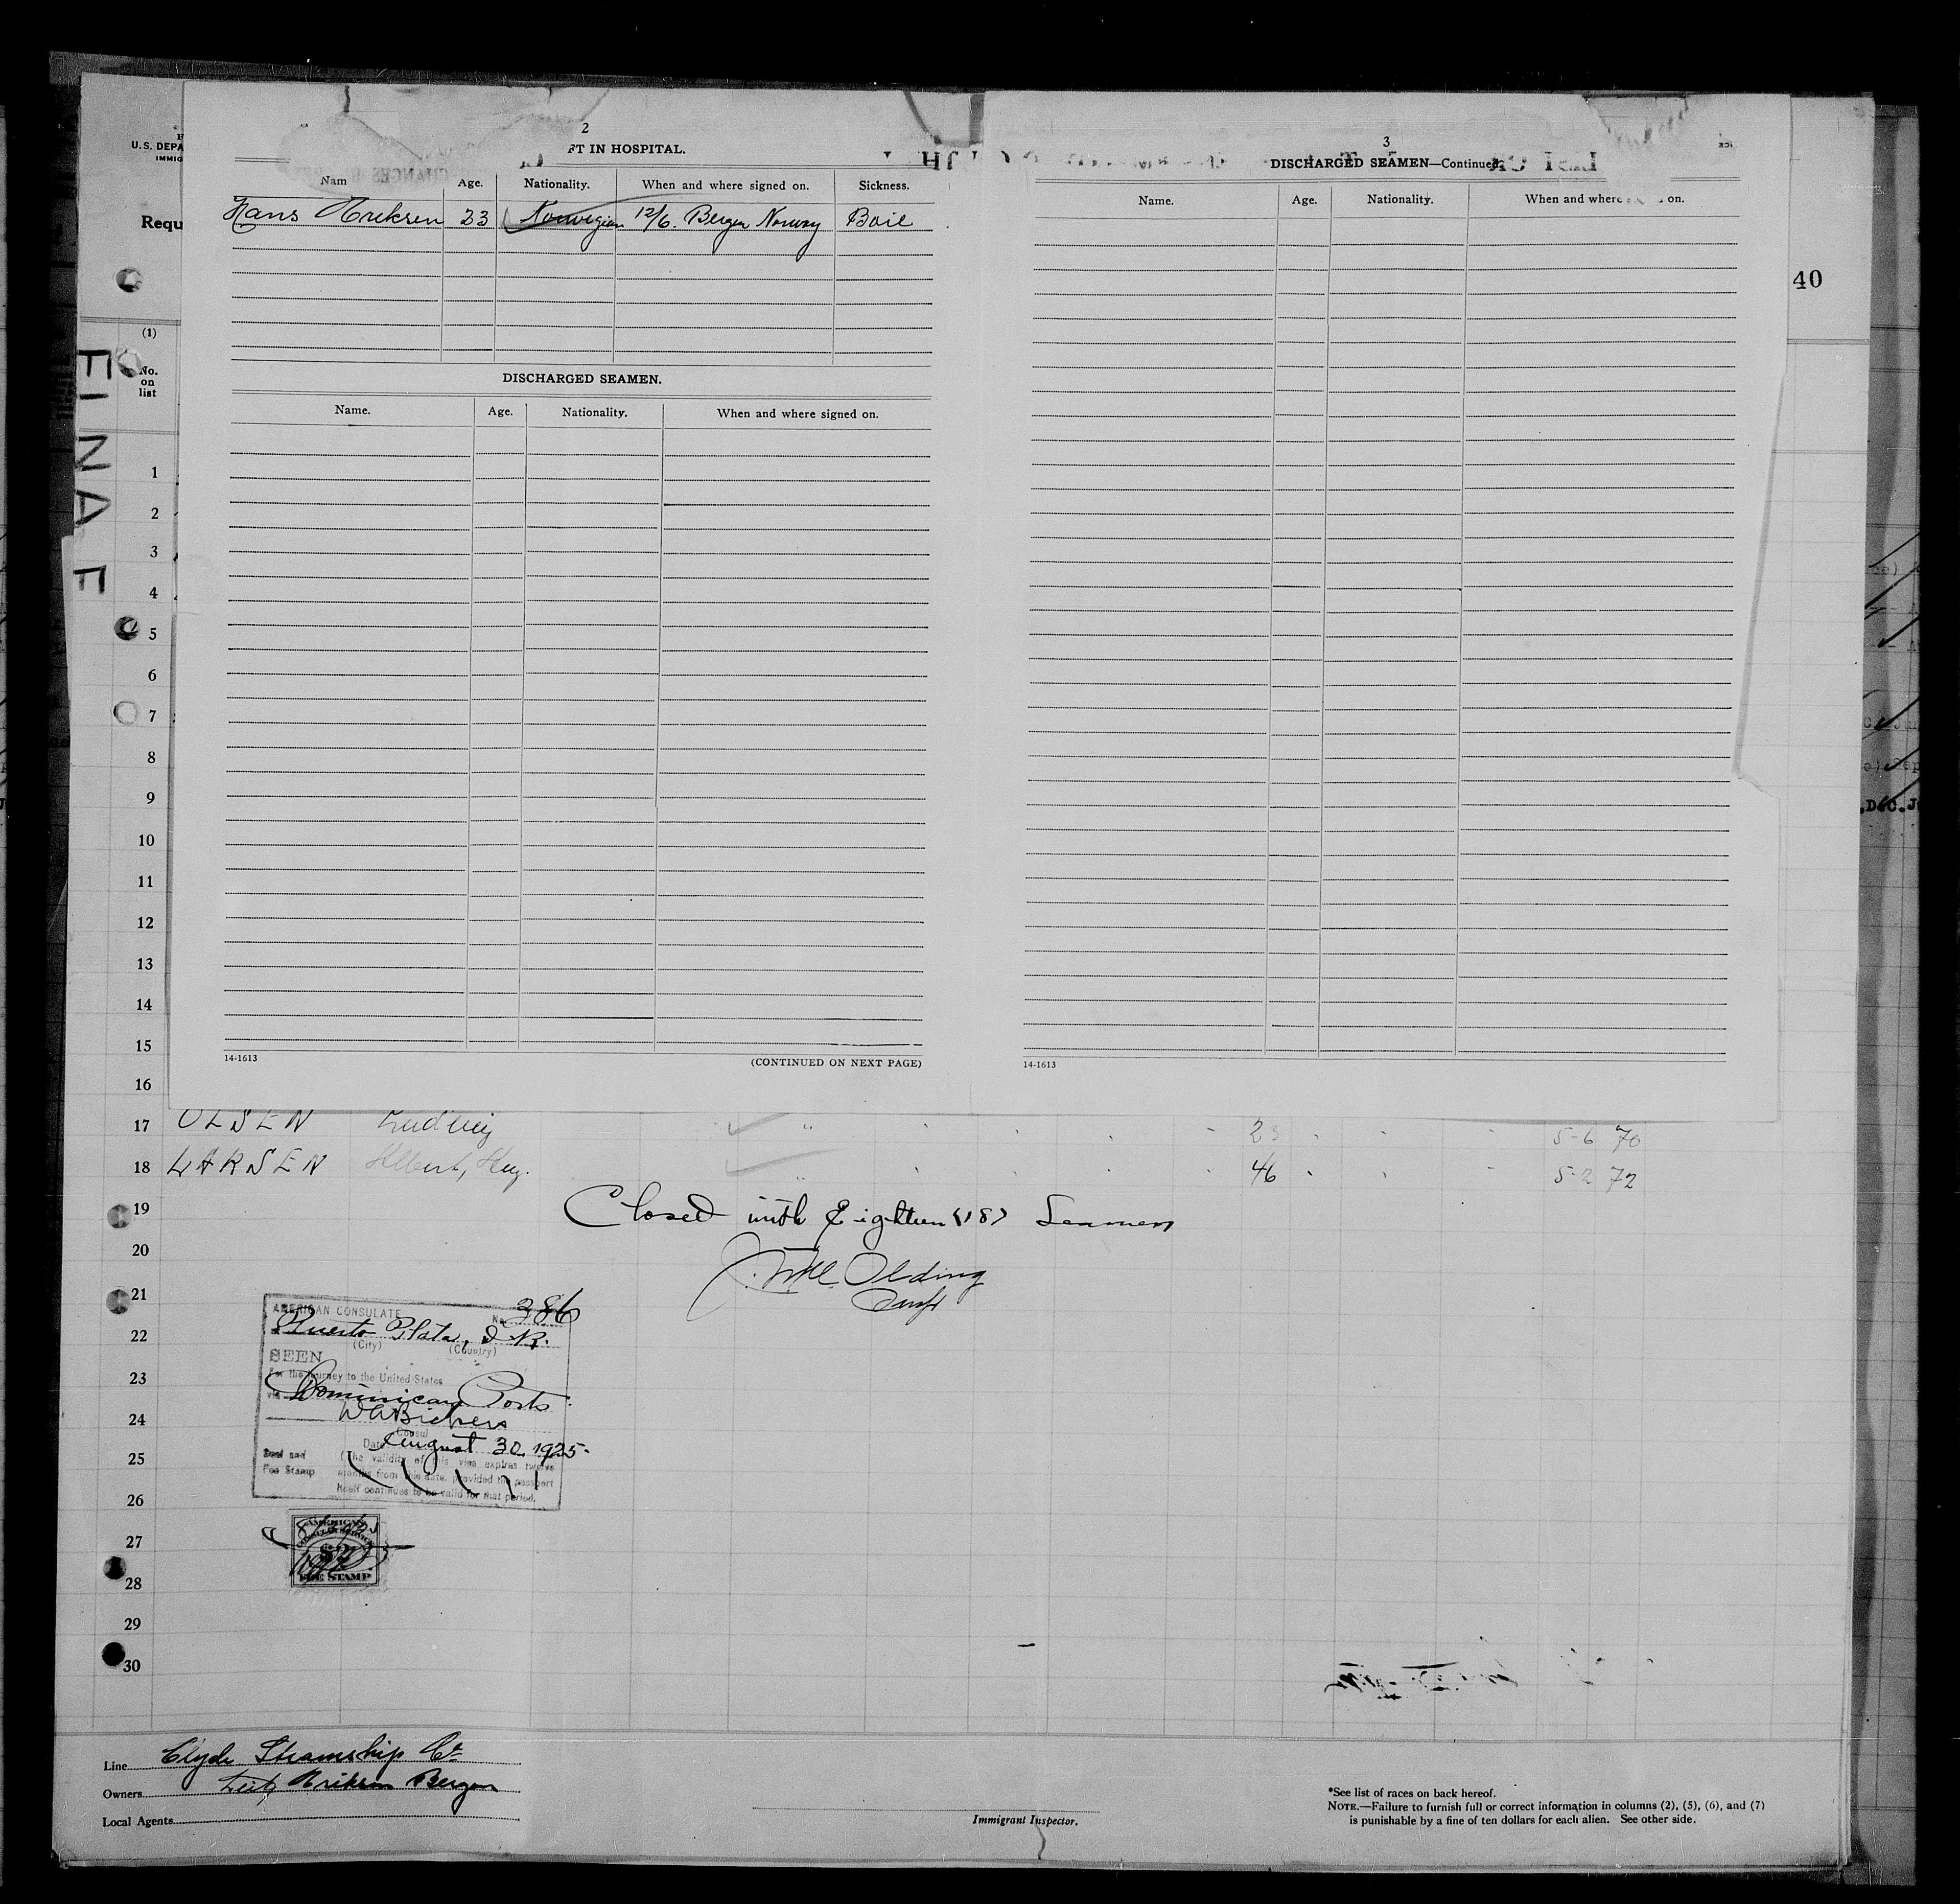 2
FT IN HOSPITAL.
Nam Age. Nationality. When and where signed on. Sickness.
Hans Eriksen 23 Norwegian 12/6. Bergen Norway Boil
DISCHARGED SEAMEN.
Name. Age. Nationality. When and where signed on.
14-1613 (CONTINUED ON NEXT PAGE)
3
DISCHARGED SEAMEN—Continued.
Name. Age. Nationality. When and where on.
14-1613
U.S. DEPA
IMMIG
Requ
40
(1)
No.
on
list
EINAF
1
2
3
4
5
6
7
8
9
10
11
12
13
14
15
16
17 OLSEN Ludvig 23 5-6 70
18 LARSEN Albert, 46 5-2 72
19 Closed with Eighteen (18) Seamen
20 Olding
21
22
23
24
25
26
27
28
29
30
AMERICAN CONSULATE No. 386
Puerto Plata, D.R.
(City) (Country)
SEEN
For the journey to the United States
via Dominican Ports.
W A Bickers
Consul
Date August 30 1925.
Seal and
Fee Stamp
(The validity of this visa expires twelve
months from this date, provided the passport
itself continues to be valid for that period.
AMERICAN
CONSULAR SERVICE
$2
FEE STAMP
Line Clyde Steamship Co
Owners Leif Erikson Bergen
Local Agents
Immigrant Inspector.
*See list of races on back hereof.
NOTE.—Failure to furnish full or correct information in columns (2), (5), (6), and (7)
is punishable by a fine of ten dollars for each alien. See other side.